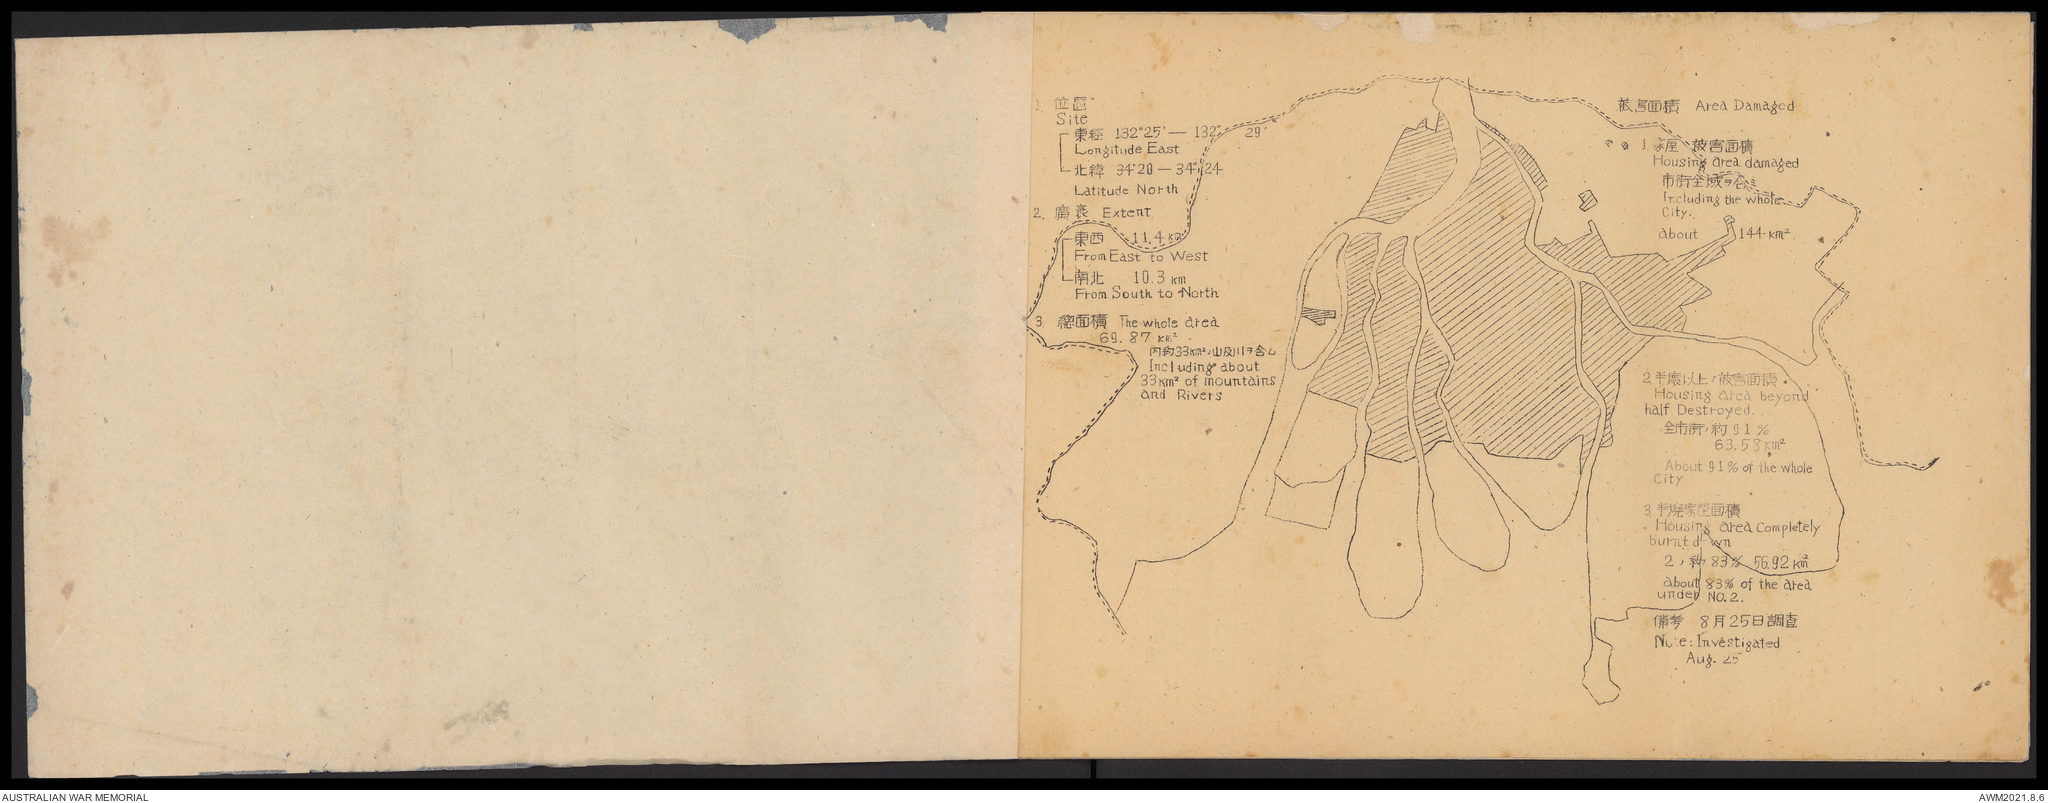 1. 位置
Site
東經 132°25'— 132° 29'
Longitude East
北緯 34°20 — 34°24
Latitude North
2. 廣袤 Extent
東西 11.4 km
From East to West
南北 10.3 km
From South to North
3. 總面積 The whole area
69.87 km²
内約33km²ハ山及川ヲ含ム
Including about
33km² of mountains
and Rivers
被害面積 Area Damaged
1. 家屋ノ被害面積
Housing area damaged
市街全域ヲ
Including the whole
City.
about 144 km²
2. 半壊以上ノ被害面積
Housing area beyond
half Destroyed.
全市街ノ約91%
63.58 km²
About 91% of the whole
City
3. 半燒家屋面積
Housing area Completely
burnt down
2ノ約83% 56.92 km²
about 83% of the area
under NO. 2.
備考 8月25日調査
Note: Investigated
Aug. 25
AUSTRALIAN WAR MEMORIAL
AWM2021.8.6